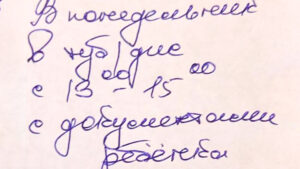 В понедельник
в каб/дне
с 13⁰⁰ - 15⁰⁰
с документами
ребёнка